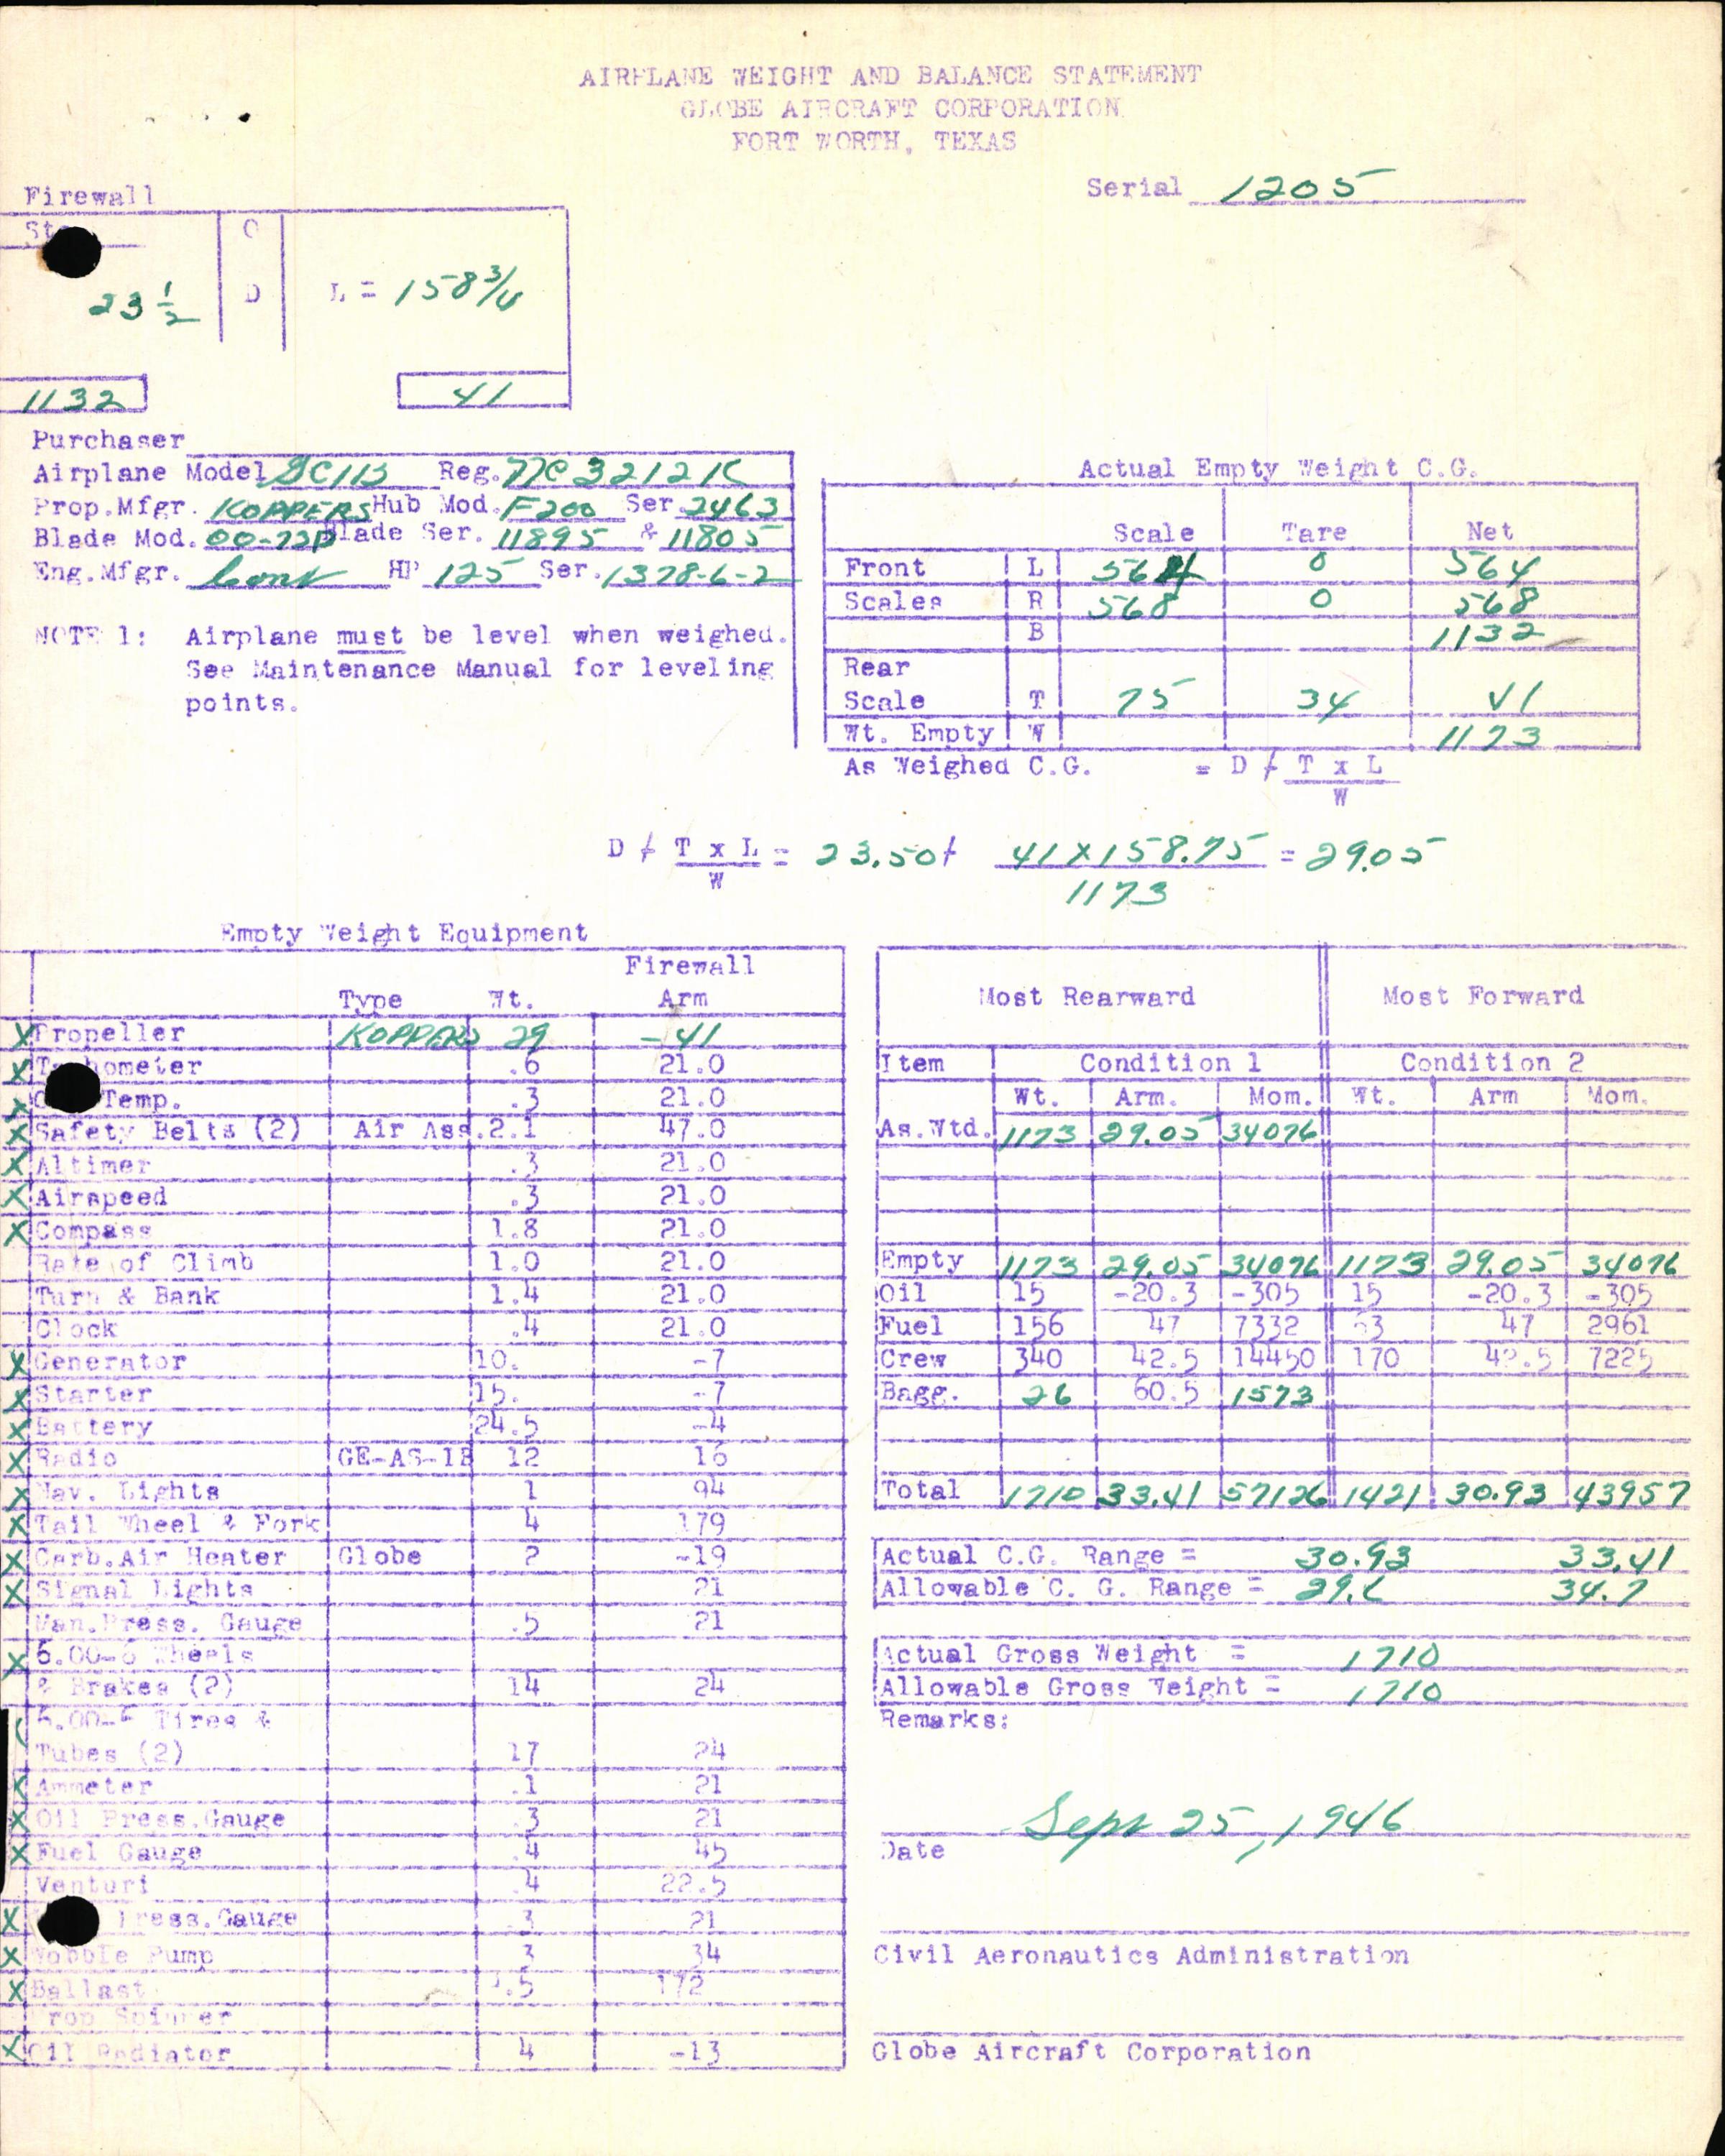 AIRPLANE WEIGHT AND BALANCE STATEMENT
GLOBE AIRCRAFT CORPORATION
FORT WORTH, TEXAS
Serial 1205
Firewall
C
23 1/2 D L = 158 3/4
1132 41
Purchaser
Airplane Model GC1B Reg. NC 3212K
Prop.Mfgr. KOPPERS Hub Mod. F200 Ser. 2463
Blade Mod. 00-73P Blade Ser. 11895 & 11805
Eng.Mfgr. Cont HP 125 Ser. 1378-6-2
NOTE 1: Airplane must be level when weighed.
See Maintenance Manual for leveling
points.
Actual Empty Weight C.G.
Scale Tare Net
Front L 564 0 564
Scales R 568 0 568
B 1132
Rear
Scale T 75 34 41
Wt. Empty W 1173
As Weighed C.G. = D + T x L
W
D + T x L = 23.50 + 41 X 158.75 = 29.05
W 1173
Empty Weight Equipment
Firewall
Type Wt. Arm
X Propeller KOPPERS 29 -41
X Tachometer .6 21.0
X Temp. .3 21.0
X Safety Belts (2) Air Ass. 2.1 47.0
X Altimer .3 21.0
X Airspeed .3 21.0
X Compass 1.8 21.0
Rate of Climb 1.0 21.0
Turn & Bank 1.4 21.0
Clock .4 21.0
X Generator 10. -7
X Starter 15. -7
X Battery 24.5 -4
X Radio GE-AS-1B 12 16
X Nav. Lights 1 94
X Tail Wheel & Fork 4 179
X Carb.Air Heater Globe 2 -19
X Signal Lights 21
Man.Press. Gauge .5 21
X 6.00-6 Wheels
& Brakes (2) 14 24
Tires &
Tubes (2) 17 24
X Ammeter .1 21
X Oil Press.Gauge .3 21
X Fuel Gauge .4 45
Venturi .4 22.5
X Press.Gauge .3 21
X Wobble Pump 3 34
X Ballast 172
Prop Spinner
X Oil Radiator 4 -13
Most Rearward Most Forward
Item Condition 1 Condition 2
Wt. Arm. Mom. Wt. Arm Mom.
As.Wtd. 1173 29.05 34076
Empty 1173 29.05 34076 1173 29.05 34076
Oil 15 -20.3 -305 15 -20.3 -305
Fuel 156 47 7332 63 47 2961
Crew 340 42.5 14450 170 42.5 7225
Bagg. 26 60.5 1573
Total 1710 33.41 57126 1421 30.93 43957
Actual C.G. Range = 30.93 33.41
Allowable C. G. Range = 34.7
Actual Gross Weight = 1710
Allowable Gross Weight = 1710
Remarks:
Sept 25, 1946
Date
Civil Aeronautics Administration
Globe Aircraft Corporation